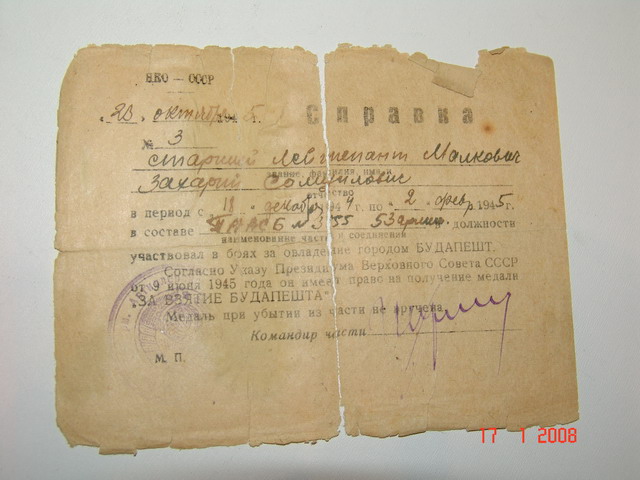 НКО — СССР
„23 октября 1945 г.
Справка
№ 3
старший лейтенант Малкович
звание, фамилия имя и
Захарий Сомуилович
отчество
в период с 11 декабр 1944 г. по 2 фев р 1945 г.
в составе № 355 53 армии. должности
наименование части и соединения
участвовал в боях за овладение городом БУДАПЕШТ.
Согласно Указу Президиума Верховного Совета СССР
от 9 июня 1945 года он имеет право на получение медали
„ЗА ВЗЯТИЕ БУДАПЕШТА"
Медаль при убытии из части не вручена.
Командир части
М. П.
17 1 2008